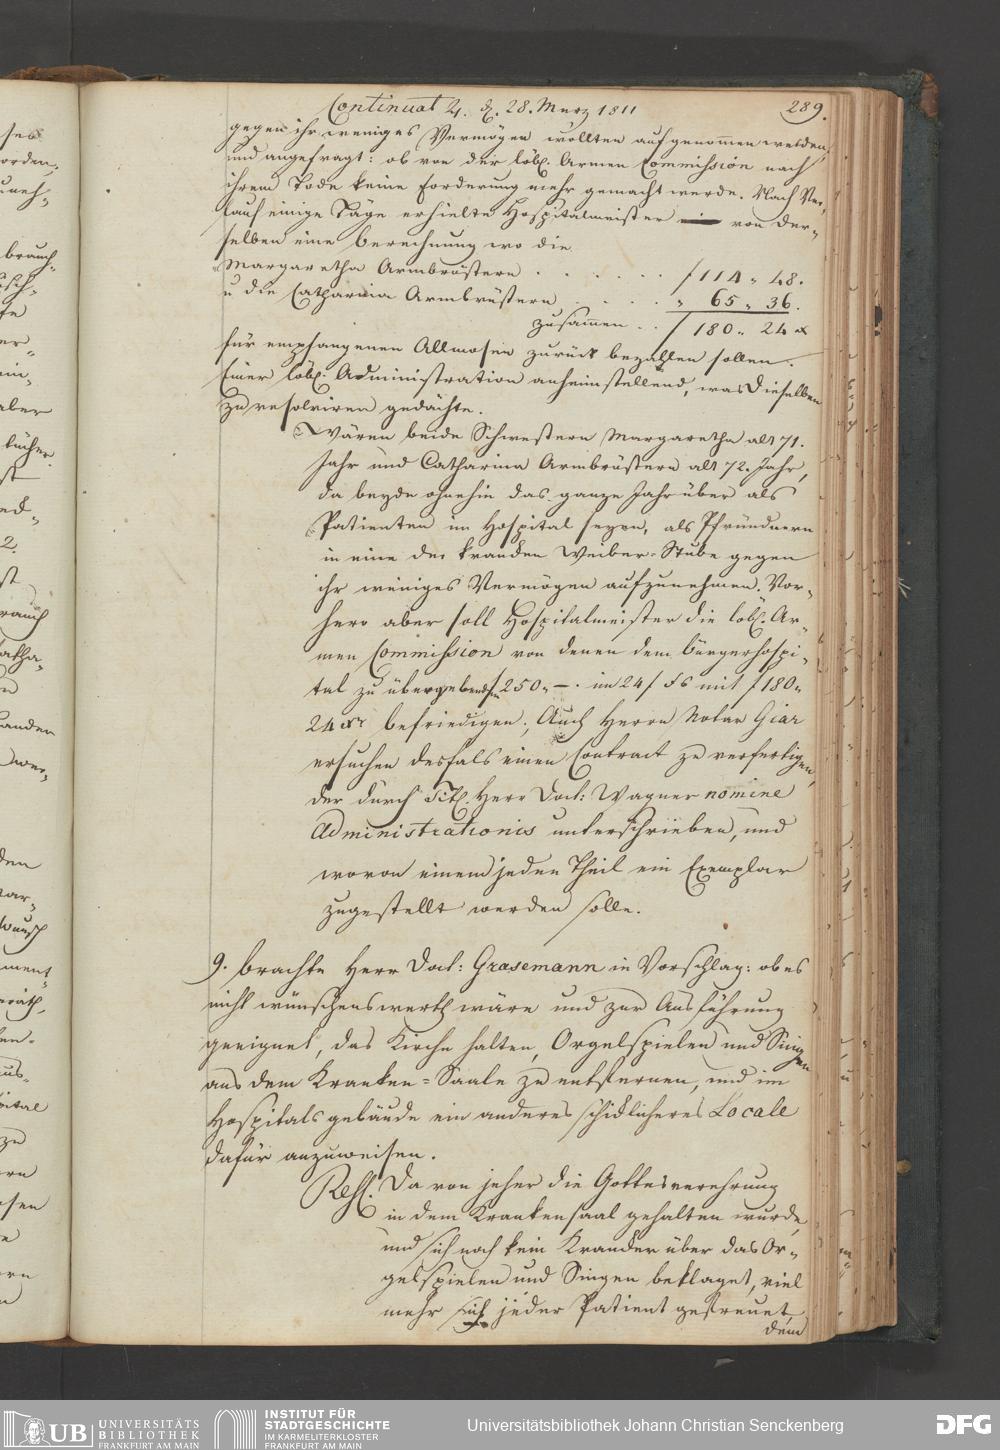 Continuat 4. d. 28. Merz 1811
289.
gegen ihr weniges Vermögen wollten aufgenommen werden,
und angefragt: ob von der löbl. Armen Commission nach
ihrem Tode keine Forderung mehr gemacht werde. Nach Ver-
lauf einige Täge erhielte Hospitalmeister von der-
selben eine berechnung wo die
Margaretha Armbrüstern . . . . . . f 114 „ 48.
u die Catharina Armbrüstern . . . . „ 65 „ 36.
zusammen . . f 180 „ 24 x
für empfangenen Allmosen zurück bezahlen sollen.
Einer löbl. Administration anheimstellend, was dieselben
zu resolviren gedächte.
Wären beide Schwestern Margaretha alt 71.
Jahr und Catharina Armbrüstern alt 72. Jahr,
da beyde ohnehin das ganze Jahr über als
Patienten im Hospital seyen, als Pfründnern
in eine der kranken Weiber-Stube gegen
ihr weniges Vermögen aufzunehmen. Vor-
hero aber soll Hospitalmeister die löbl. Ar-
men Commission von denen dem bürgerhospi-
tal zu übergebenden f 250 „ —. im 24 f Fs mit f 180 „
24 xr befriedigen; Auch Herrn Notar Giar
ersuchen desfals einen Contract zu verfertigen,
der durch Tit. Herr Doct: Wagner nomine
Administrationis unterschrieben, und
wovon einem jeden Theil ein Exemplar
zugestellt werden solle.
9. brachte Herr Doct: Grasemann in Vorschlag: ob es
nicht wünschenswerth wäre und zur Ausführung
geeignet, das Kirche halten, Orgelspielen und Singen
aus dem Kranken-Saale zu entfernen, und im
Hospitals gebäude ein anderes schicklicheres Locale
dafür anzuweisen.
Resl. Da von jeher die Gottesverehrung
in dem Krankensaal gehalten wurde,
und sich noch kein Krancker über das Or-
gelspielen und Singen beklaget, viel
mehr sich jeder Patient gefreuet,
dem
UB UNIVERSITÄTS
BIBLIOTHEK
FRANKFURT AM MAIN
INSTITUT FÜR
STADTGESCHICHTE
IM KARMELITERKLOSTER
FRANKFURT AM MAIN
Universitätsbibliothek Johann Christian Senckenberg
DFG